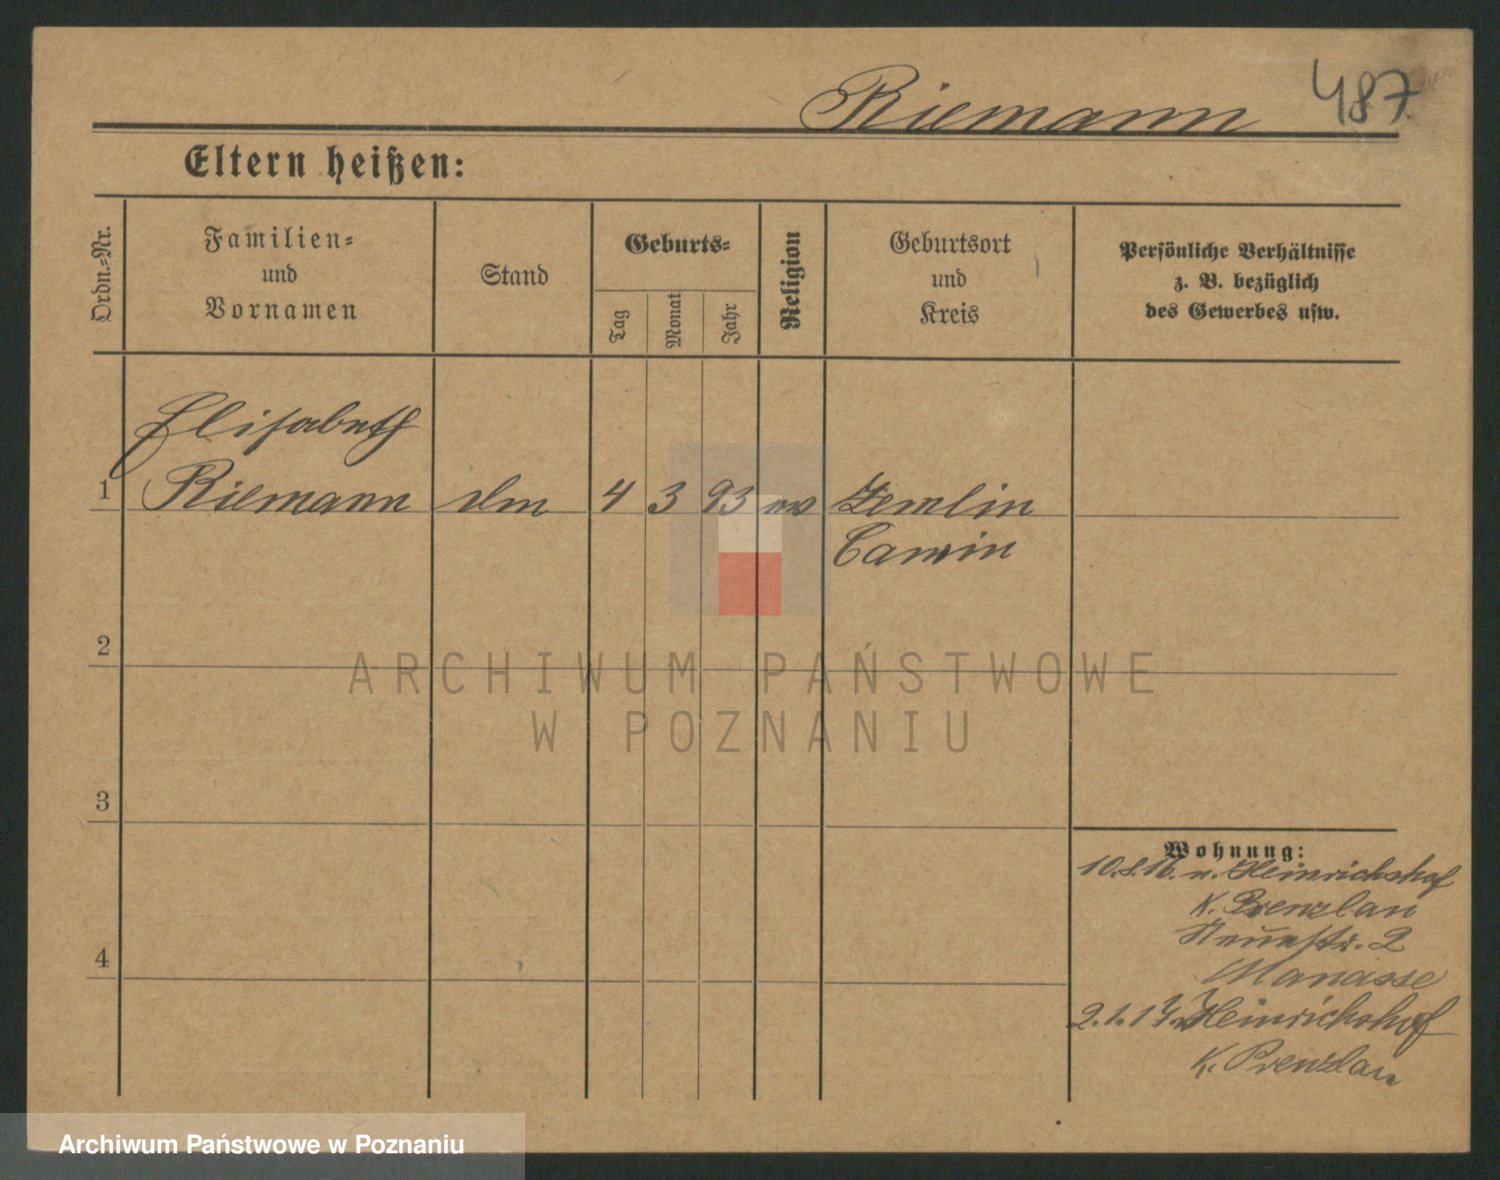 Riemann 487
Eltern heißen:
Ordn.-Nr.
Familien-
und
Vornamen
Stand
Geburts-
Tag
Monat
Jahr
Religion
Geburtsort
und
Kreis
Persönliche Verhältnisse
z. B. bezüglich
des Gewerbes usw.
Elisabeth
1 Riemann 4 3 93 ev Zemlin
Camin
2
3
4
Wohnung:
10.8.16. n. Heinrichshof
K. Prenzlau
Neuestr. 2
Manasse
2.1.17. Heinrichshof
K. Prenzlau
ARCHIWUM PAŃSTWOWE
W POZNANIU
Archiwum Państwowe w Poznaniu